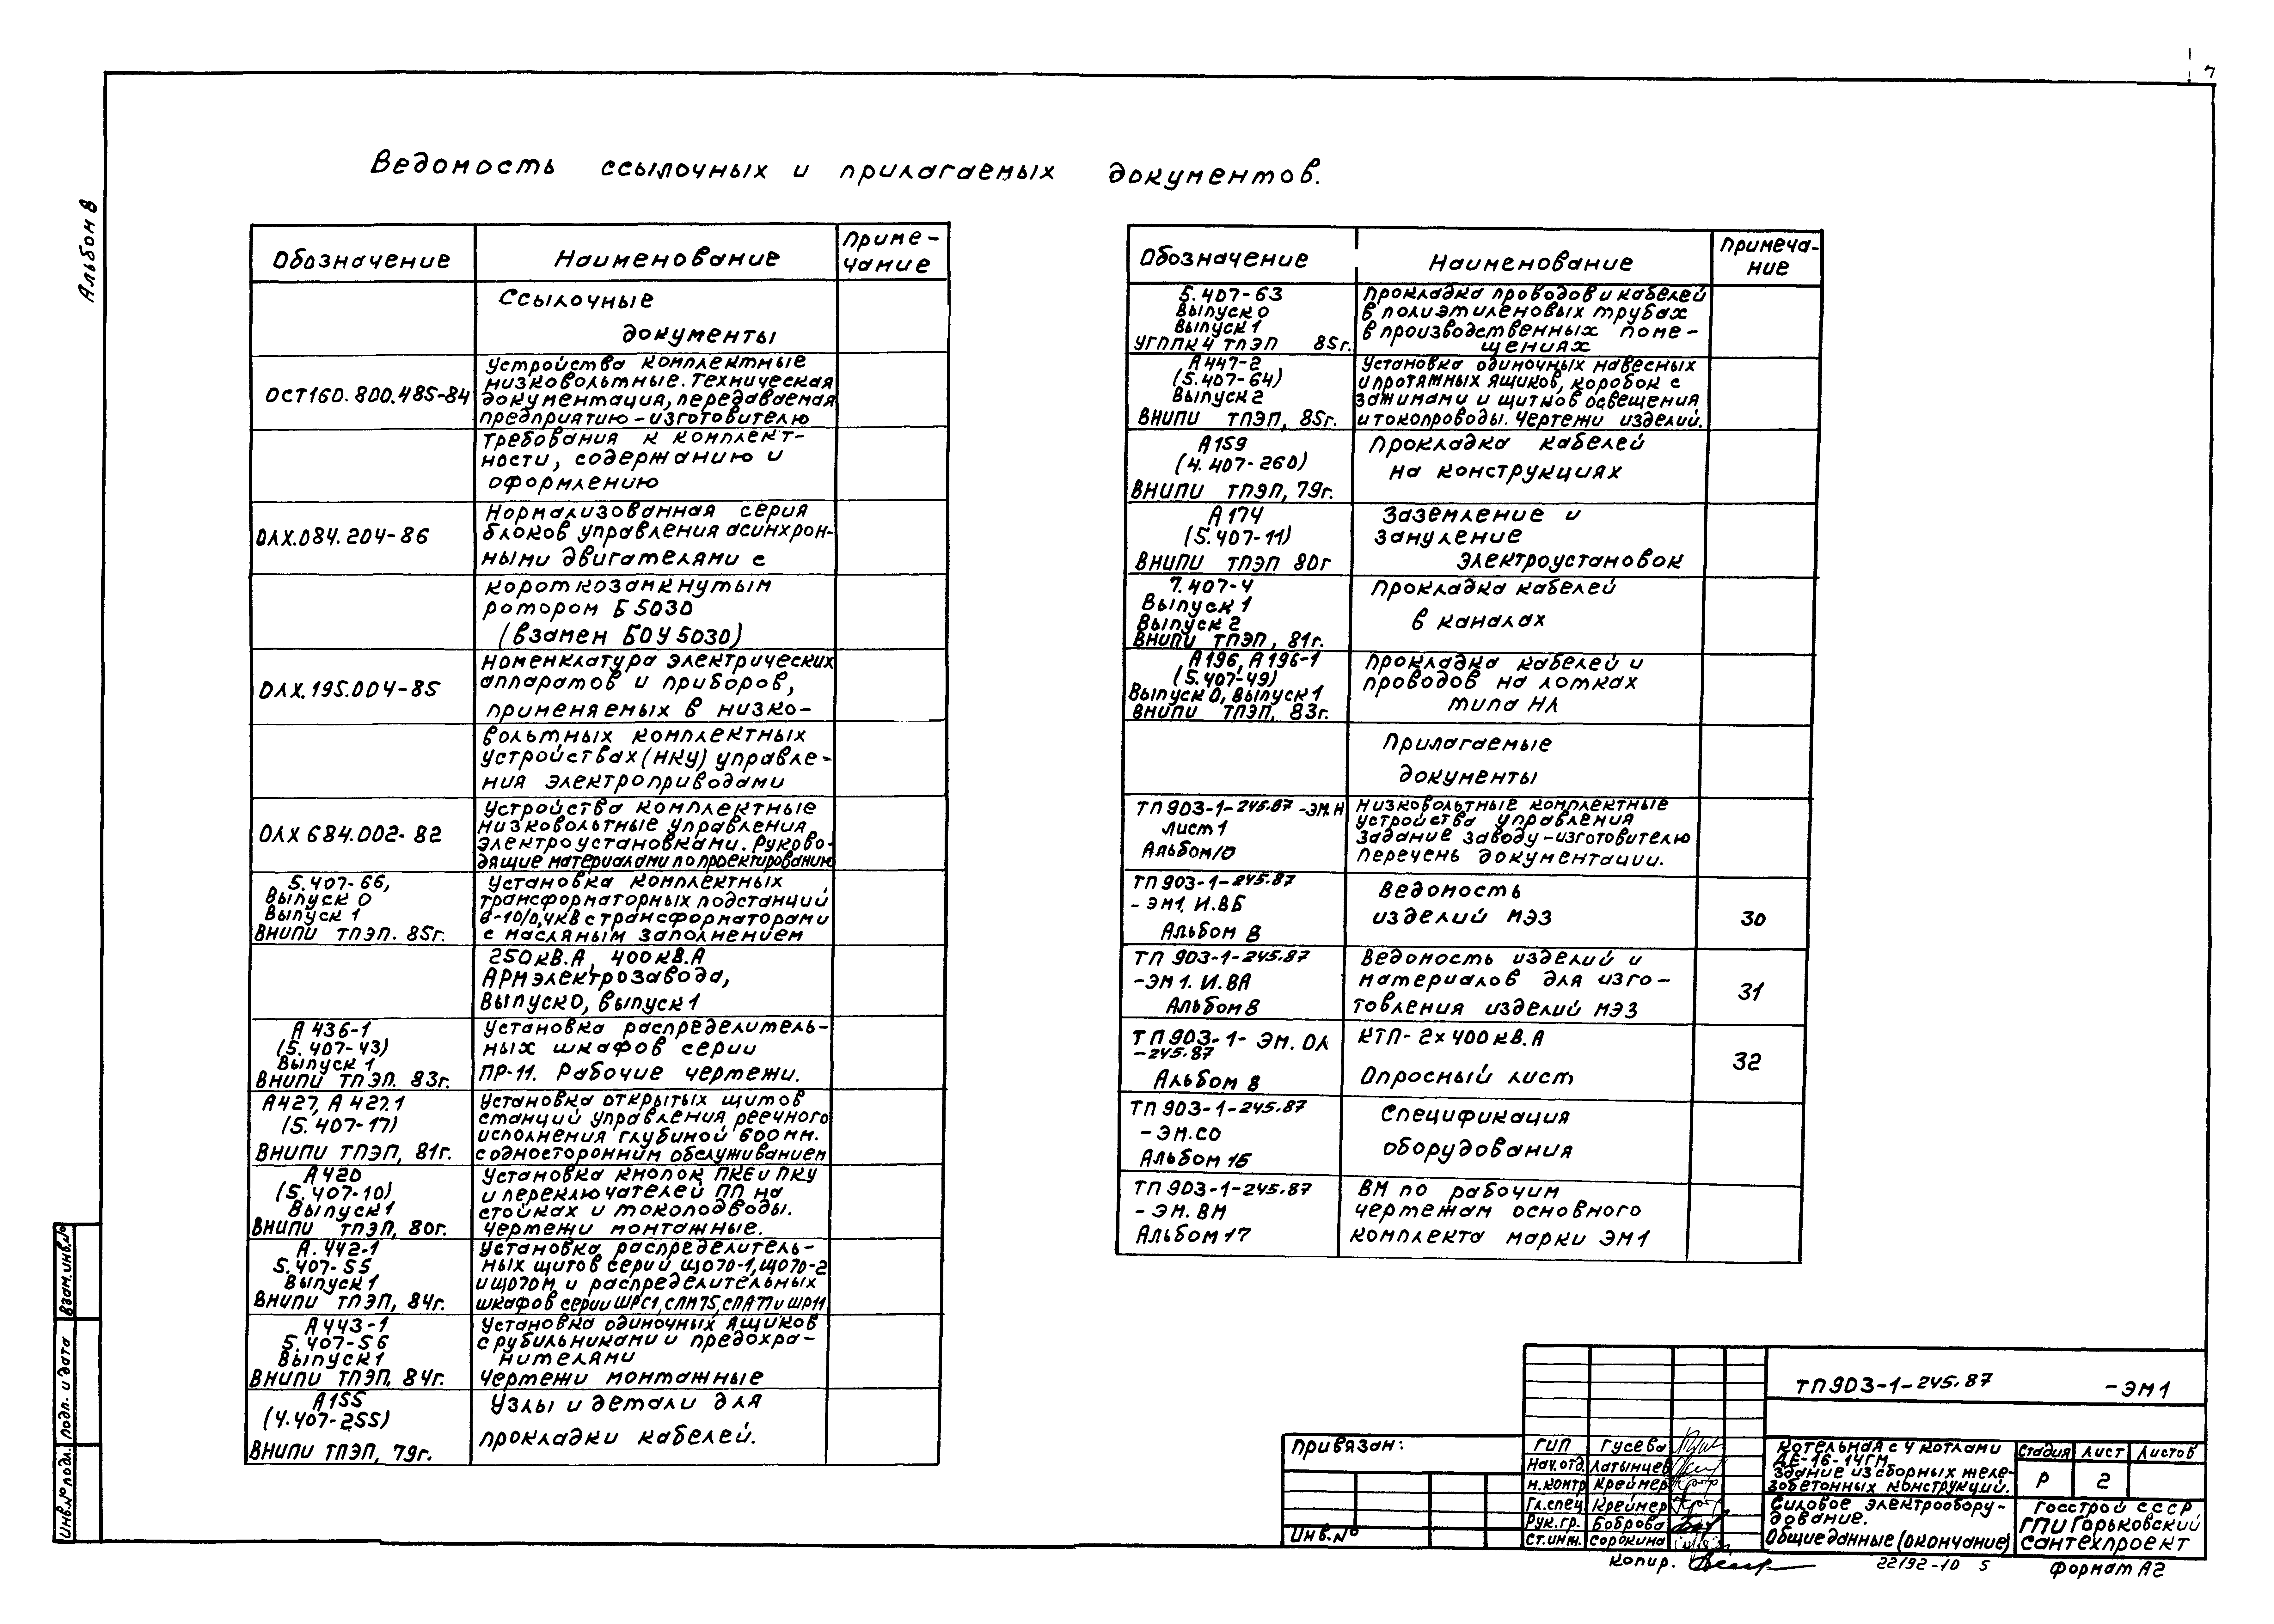 7
Альбом 8
Ведомость ссылочных и прилагаемых документов.
Обозначение Наименование Приме-
чание
Ссылочные
документы
ОСТ160.800.485-84
Устройства комплектные
низковольтные. Техническая
документация, передаваемая
предприятию-изготовителю
требования к комплект-
ности, содержанию и
оформлению
ОЛХ.084.204-86
Нормализованная серия
блоков управления асинхрон-
ными двигателями с
короткозамкнутым
ротором Б5030
(взамен БОУ5030)
ОЛХ.195.004-85
Номенклатура электрических
аппаратов и приборов,
применяемых в низко-
вольтных комплектных
устройствах (НКУ) управле-
ния электроприводами
ОЛХ 684.002-82
Устройства комплектные
низковольтные управления
электроустановками. Руково-
дящие материалами по проектированию
5.407-66,
Выпуск 0
Выпуск 1
ВНИПИ ТПЭП. 85г.
Установка комплектных
трансформаторных подстанций
6-10/0,4кВ с трансформаторами
с масляным заполнением
250кВ.А, 400кВ.А
Армэлектрозавода,
Выпуск0, выпуск1
А436-1
(5.407-43)
Выпуск 1
ВНИПИ ТПЭП. 83г.
Установка распределитель-
ных шкафов серии
ПР-11. Рабочие чертежи.
А427, А427.1
(5.407-17)
ВНИПИ ТПЭП, 81г.
Установка открытых щитов
станций управления реечного
исполнения глубиной 600мм.
с односторонним обслуживанием
А420
(5.407-10)
Выпуск1
ВНИПИ ТПЭП, 80г.
Установка кнопок ПКЕ и ПКУ
и переключателей ПП на
стойках и токоподводы.
Чертежи монтажные.
А.442-1
5.407-55
Выпуск1
ВНИПИ ТПЭП, 84г.
Установка распределитель-
ных щитов серий ЩО70-1, ЩО70-2
и ЩО70М и распределительных
шкафов серии ШРС1, СПМ75, СПА77 и ШР11
А443-1
5.407-56
Выпуск1
ВНИПИ ТПЭП, 84г.
Установка одиночных ящиков
с рубильниками и предохра-
нителями
Чертежи монтажные
А155
(4.407-255)
ВНИПИ ТПЭП, 79г.
Узлы и детали для
прокладки кабелей.
Обозначение Наименование Примеча-
ние
5.407-63
Выпуск 0
Выпуск 1
УГППКЧ ТПЭП 85г.
Прокладка проводов и кабелей
в полиэтиленовых трубах
в производственных поме-
щениях
А447-2
(5.407-64)
Выпуск 2
ВНИПИ ТПЭП, 85г.
Установка одиночных навесных
и протяжных ящиков, коробок с
зажимами и щитков освещения
и токопроводы. Чертежи изделий.
А159
(4.407-260)
ВНИПИ ТПЭП, 79г.
Прокладка кабелей
на конструкциях
А174
(5.407-11)
ВНИПИ ТПЭП 80г
Заземление и
зануление
электроустановок
7.407-4
Выпуск 1
Выпуск 2
ВНИПИ ТПЭП, 81г.
Прокладка кабелей
в каналах
А196, А196-1
(5.407-49)
Выпуск 0, выпуск 1
ВНИПИ ТПЭП, 83г.
Прокладка кабелей и
проводов на лотках
типа НЛ
Прилагаемые
документы
ТП 903-1-245.87 -ЭМ.Н
Лист 1
Альбом 10
Низковольтные комплектные
устройства управления
Задание заводу-изготовителю
Перечень документации.
ТП 903-1-245.87
-ЭМ1.И.ВБ
Альбом 8
Ведомость
изделий МЭЗ
30
ТП 903-1-245.87
-ЭМ1.И.ВА
Альбом 8
Ведомость изделий и
материалов для изго-
товления изделий МЭЗ
31
ТП 903-1- ЭМ.ОЛ
-245.87
Альбом 8
КТП-2х400кВ.А
Опросный лист
32
ТП 903-1-245.87
-ЭМ.СО
Альбом 15
Спецификация
оборудования
ТП 903-1-245.87
-ЭМ.ВМ
Альбом 17
ВМ по рабочим
чертежам основного
комплекта марки ЭМ1
Взам.инв.№
Подп. и дата
Инв.№подл.
Привязан:
Инв.№
ГИП Гусева
Нач.отд. Латынцев
Н.контр Креймер
Гл.спец. Креймер
Рук.гр. Боброва
Ст.инж. Сорокина
ТП903-1-245.87 -ЭМ1
Котельная с 4 котлами
ДЕ-16-14ГМ
Здание из сборных желе-
зобетонных конструкций.
Стадия Лист Листов
Р 2
Силовое электрообору-
дование.
Общие данные (окончание)
Госстрой СССР
ГПИ Горьковский
Сантехпроект
Копир.
22192-10 5
Формат А2